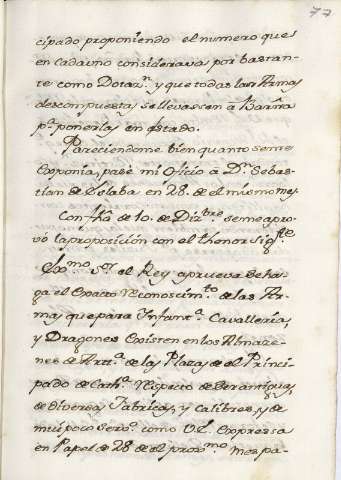 77
cipado proponiendo el numero que
en cada uno considerava por bastan-
te como Dotaz.n y que todas las Armas
descompuestas se llevassen â Barñа
p.a ponerlas en estado.
Pareciendome bien quanto se me
Exponia, pasè mi Oficio à D.n Sebas-
tian de Eslaba en 28. de el mismo mes
Con fha de 10. de Diz.bre se me apro-
vò la proposicion con el thenor sig.te
Ex.mo S.r el Rey aprueva de ha-
ga el Exacto Reconoscim.to de las Ar-
mas que para Infant.a Cavalleria,
y Dragones Existen en los Almaze-
nes de Art.a de las Plazas de el Princi-
pado de Cath.a Respecto de ser antiguas,
de diversas Fabricas, y Calibres, y de
mui poco serv.o como V.E. Expressa
en Papel de 28 de el prox.mo mes pa-